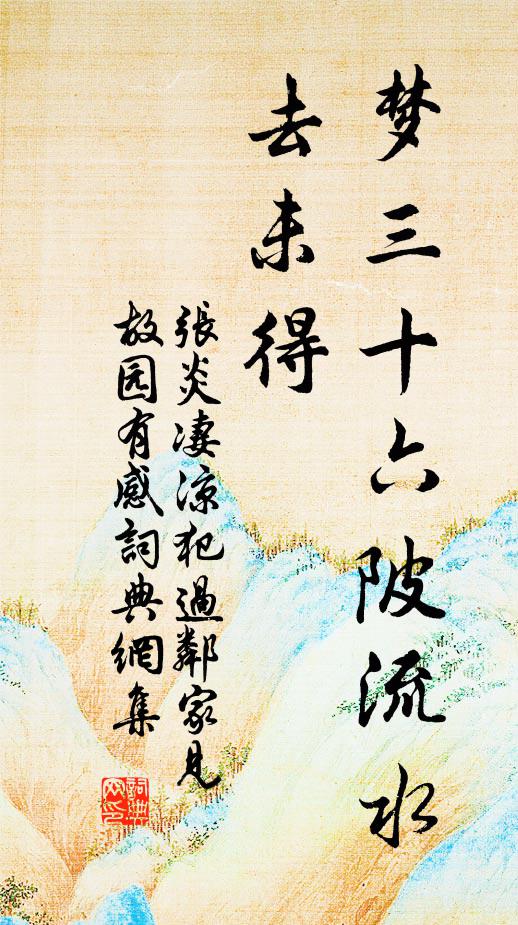 梦三十六陂流水
去未得
張炎凄涼犯過鄰家見
故园有感詞典網集
詞典
网印